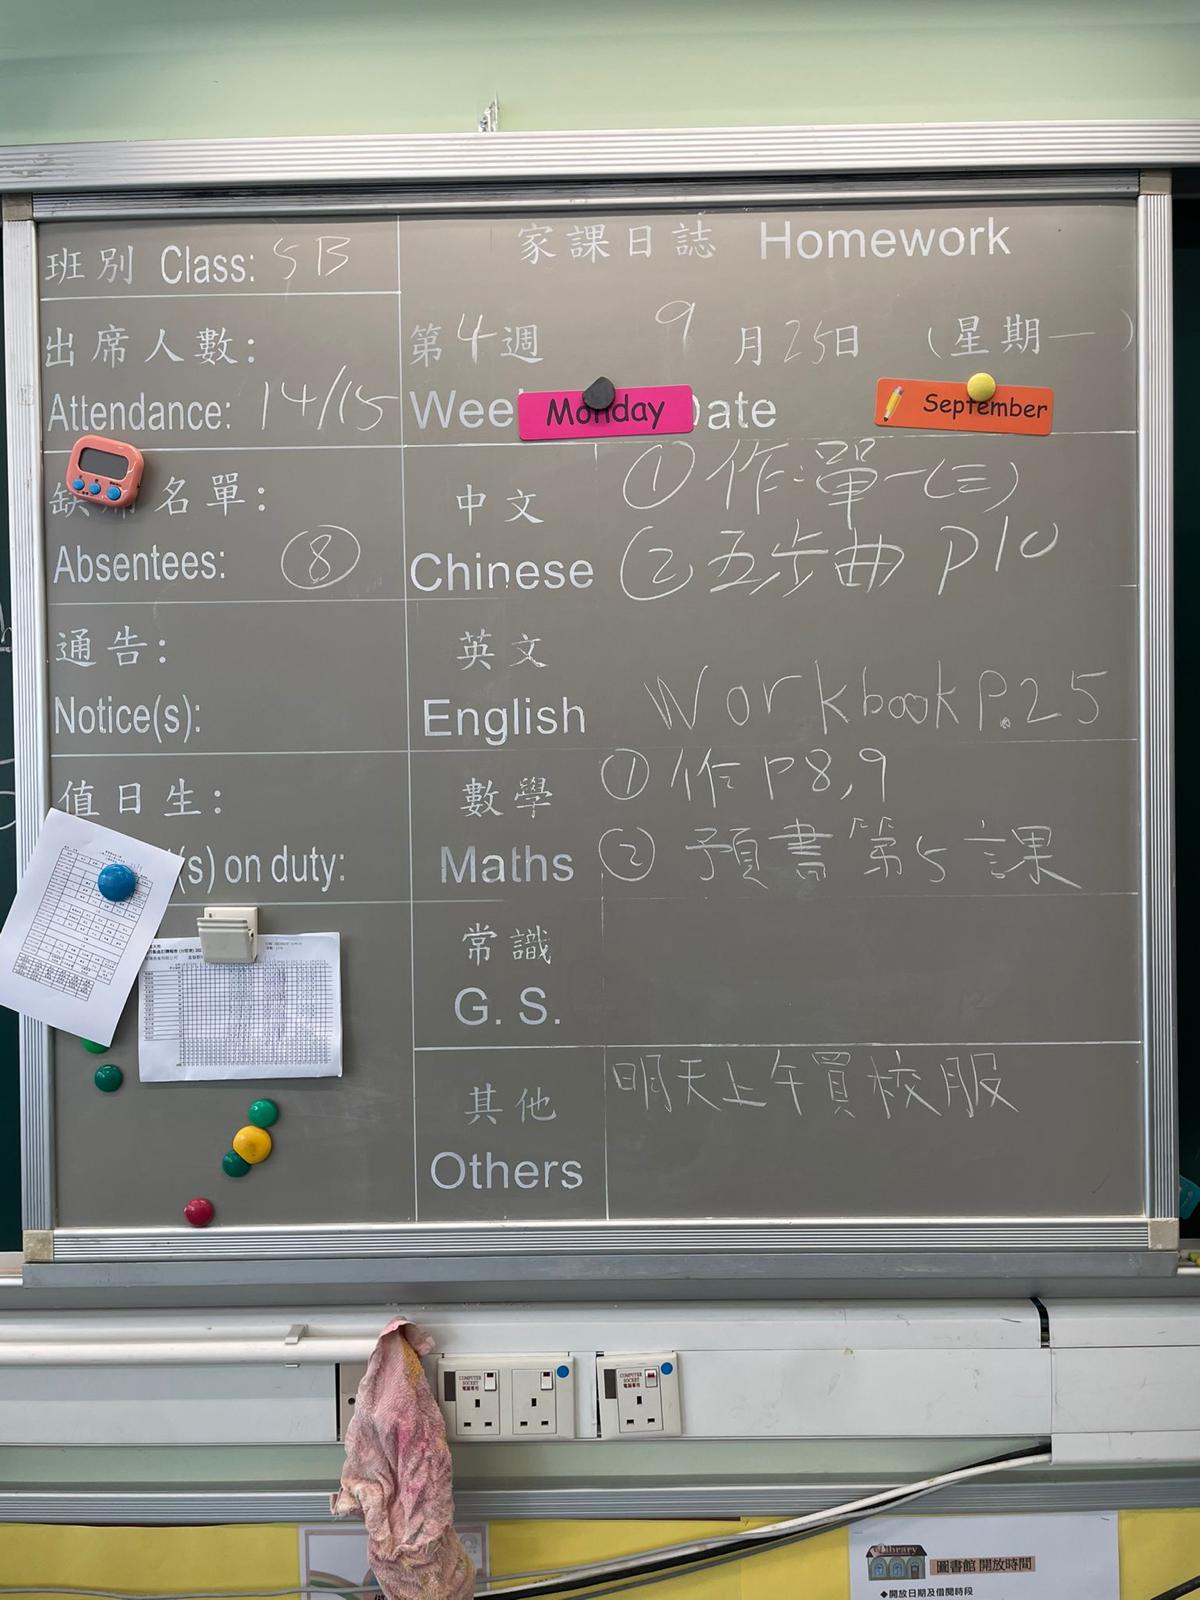 班別 Class: 5B
家課日誌 Homework
出席人數:
Attendance: 14/15
第4週 9月25日 (星期一)
Monday
September
名單:
Absentees: ⑧
通告:
Notice(s):
值日生:
(s) on duty:
中文
Chinese
① 作:單一(三)
② 五步曲 P10
英文
English
Workbook P.25
數學
Maths
① 作 P8,9
② 預書第5課
常識
G. S.
其他
Others
明天上午買校服
COMPUTER SOCKET
電腦專用
COMPUTER SOCKET
電腦專用
Library
圖書館 開放時間
◆開放日期及借閱時段